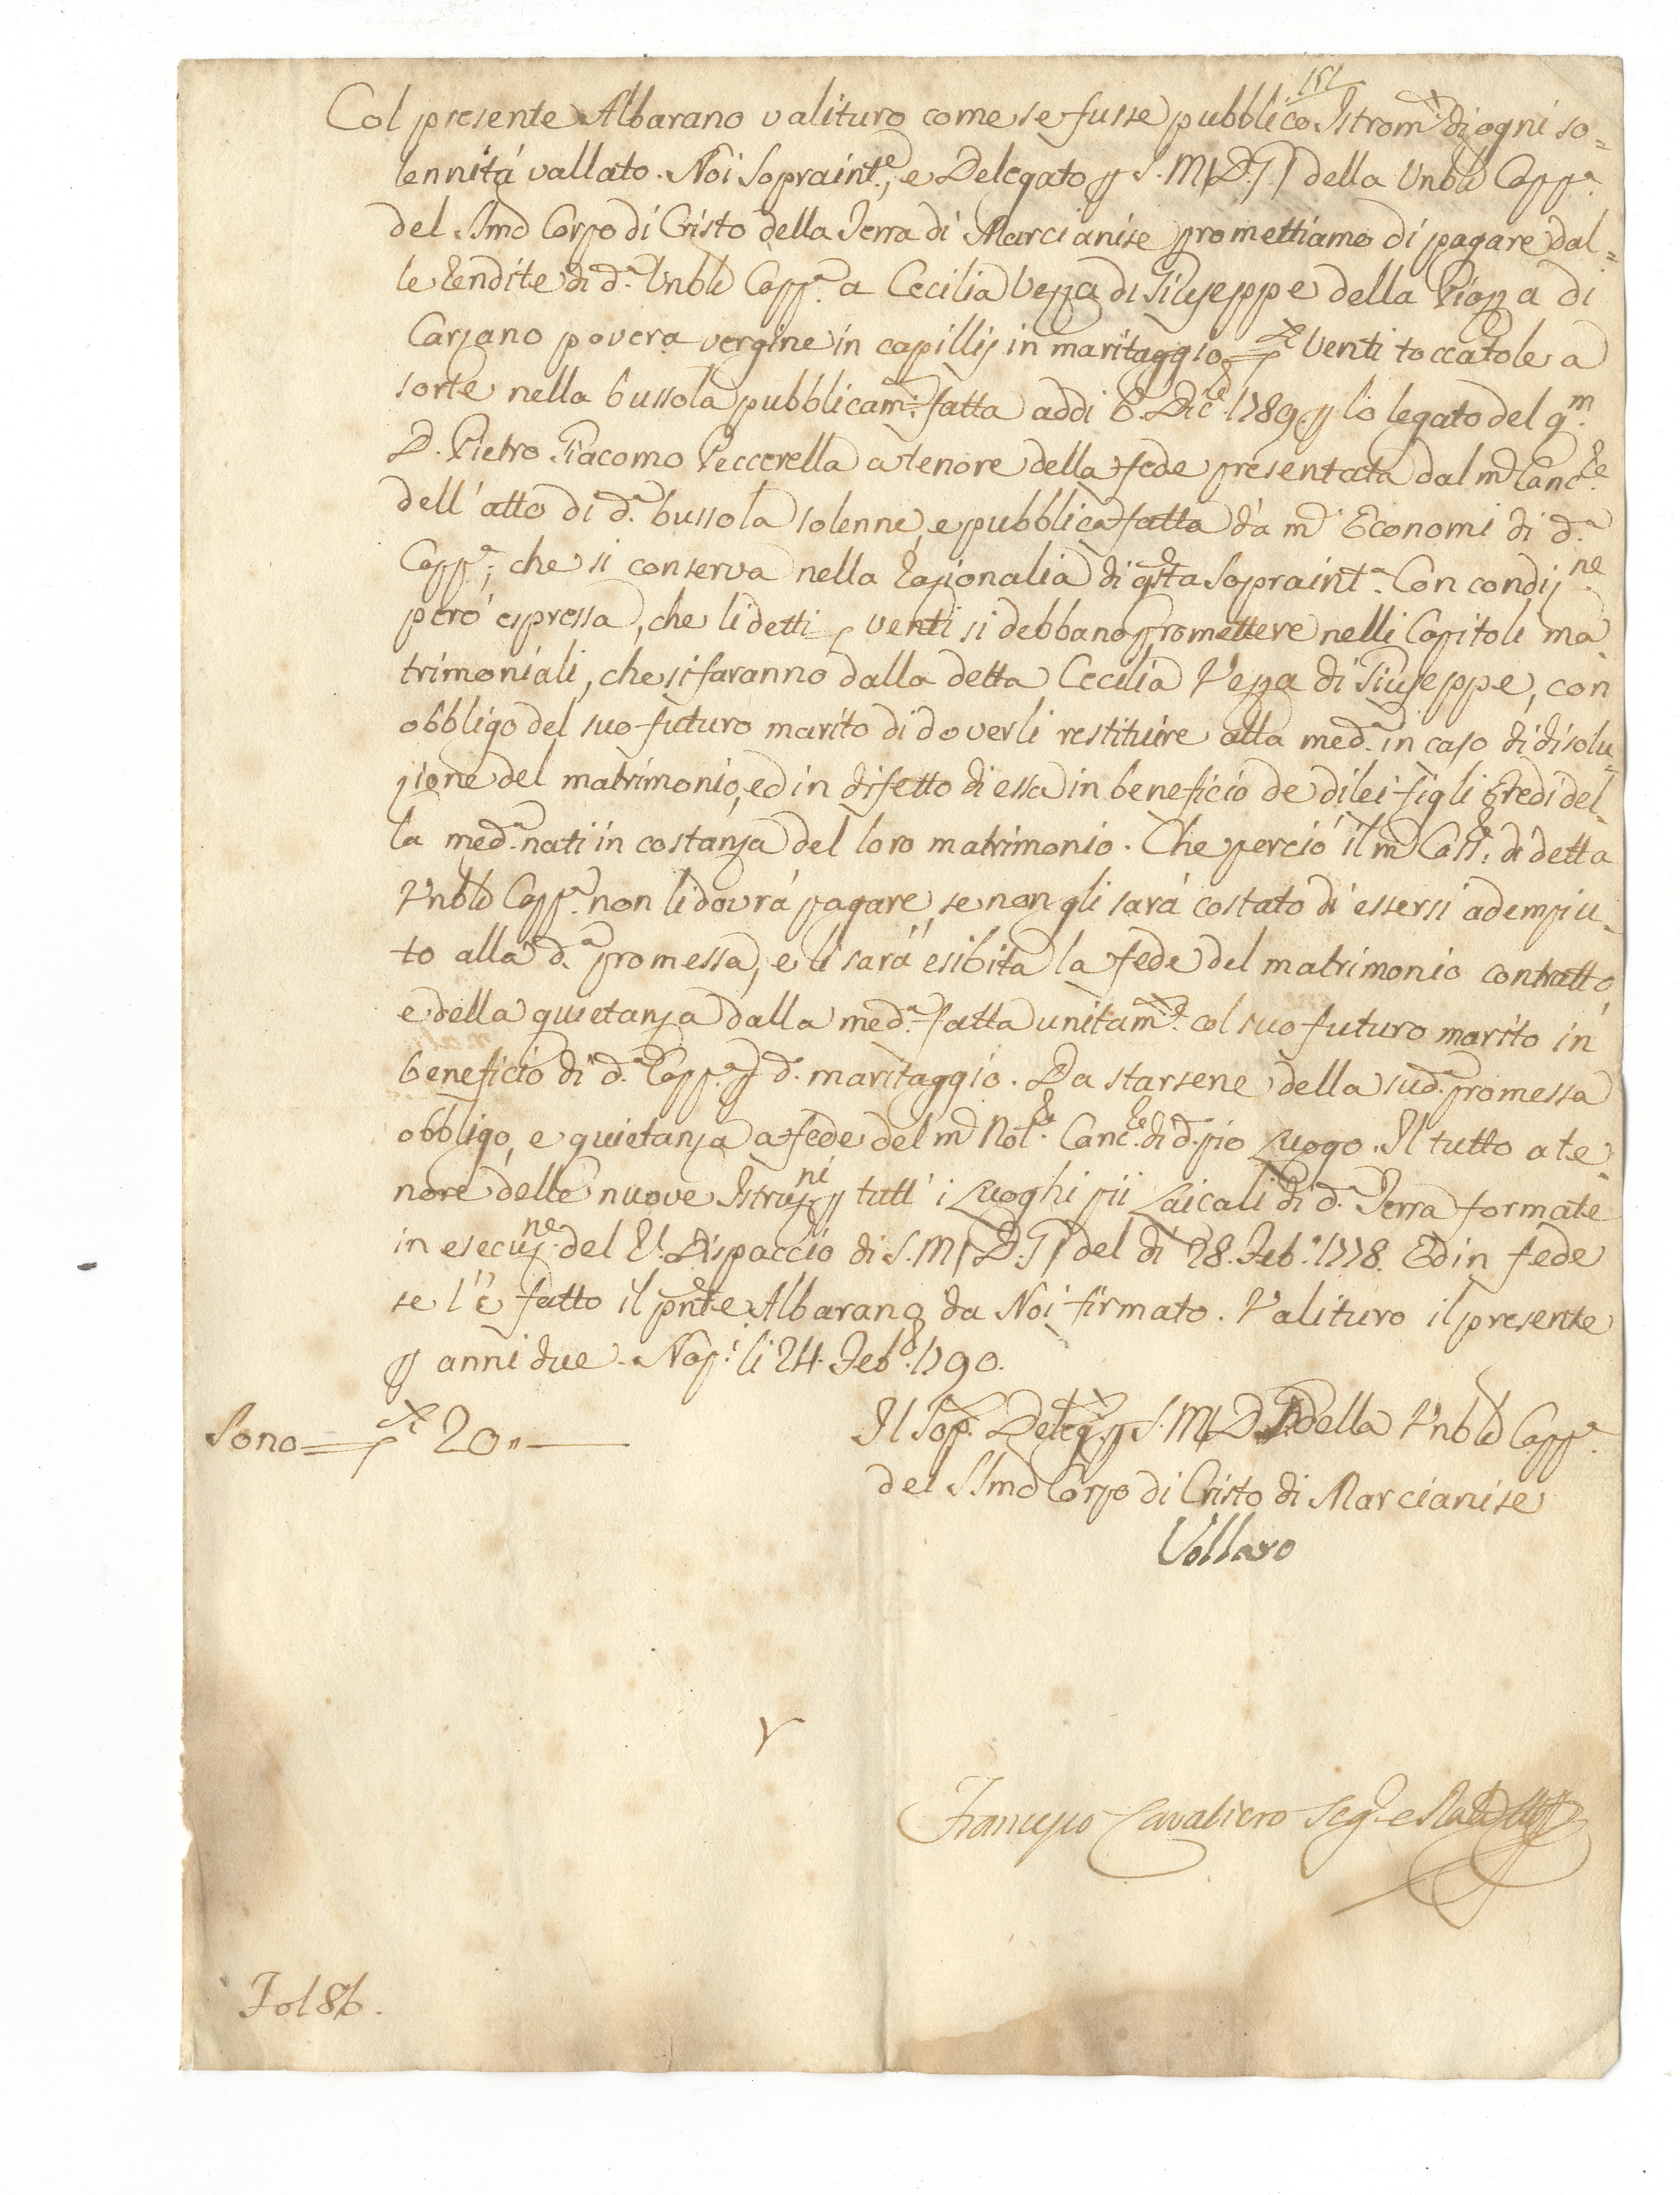 151
Col presente Albarano valituro come se fusse pubblico Istrom.to di ogni so=
lennitá vallato. Noi Sopraint.e, e Delegato p S.M.(D.G.) della Vnble Capp.a
del SSmo Corpo di Cristo della Terra di Marcianise promettiamo di pagare dal=
le rendite di d.a Vnble Capp.a a Cecilia Vezza di Giuseppe della Piazza di
Carzano povera vergine in capillis in maritaggio = D.ti Venti toccatole a
sorte nella bussola pubblicam.te fatta addi 6. Dic.e 1789. p lo legato del q.m
D. Pietro Giacomo Peccerella a tenore della fede presentata dal mco Canc.re
dell' atto di d.a bussola solenne, e pubblica fatta dà mci Economi di d.a
Capp.a, che si conserva nella Razionalia di qsta Sopraint.a Con condiz.ne
peró espressa, che li detti D. venti si debbano promettere nelli Capitoli ma=
trimoniali, che si faranno dalla detta Cecilia Vezza di Giuseppe, con
obbligo del suo futuro marito di doverli restituire alla med.a in caso di disolu=
zione del matrimonio, ed in difetto di essa in beneficio de di lei figli Eredi del=
la med.a nati in costanza del loro matrimonio. Che perció il mco Cass.e di detta
Vnble Capp.a non li dovrá pagare, se non gli sará costato di essersi adempiu=
to alla d.a promessa, e li sará esibita la fede del matrimonio contratto,
e della quietanza dalla med.a fatta unitam.te col suo futuro marito in
beneficio di d.a Capp.a p d.o maritaggio. Da starsene della sud.a promessa
obbligo, e quietanza a fede del mco Not.re Canc.re di d.o pio Luogo. Il tutto a te=
nore delle nuove Istruz.ni p tutt' i Luoghi pii Laicali di d.a Terra formate
in esecuz.ne del R.l Dispaccio di S.M.(D.G.) del di 28. Feb.o 1778. Ed in fede
se l' é fatto il pnte Albarano da Noi firmato. Valituro il presente
p anni due. Nap.i li 24. Feb.o 1790.
Sono = D.ti 20 „ —
Il Sop. Deleg.to p S.M.(D.G.) della Vnble Capp.a
del SSmo Corpo di Cristo di Marcianise
Vollaro
Francesco Cavaliero Seg.o e
Fol 86.